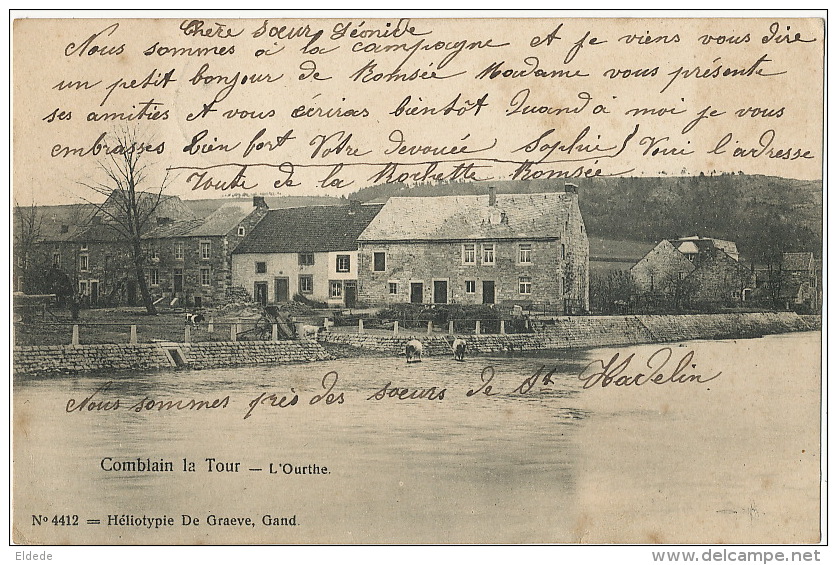 Chère Soeur Léonide
Nous sommes à la campagne et je viens vous dire
un petit bonjour de Romsée Madame vous présente
ses amitiés et vous écriras bientôt Quand à moi je vous
embrasses bien fort Votre devouée Sophie Voici l'adresse
Toute de la Rochette Romsée
Nous sommes près des soeurs de St Hadelin
Comblain la Tour — L'Ourthe.
No 4412 = Héliotypie De Graeve, Gand.
Eldede
www.delcampe.net